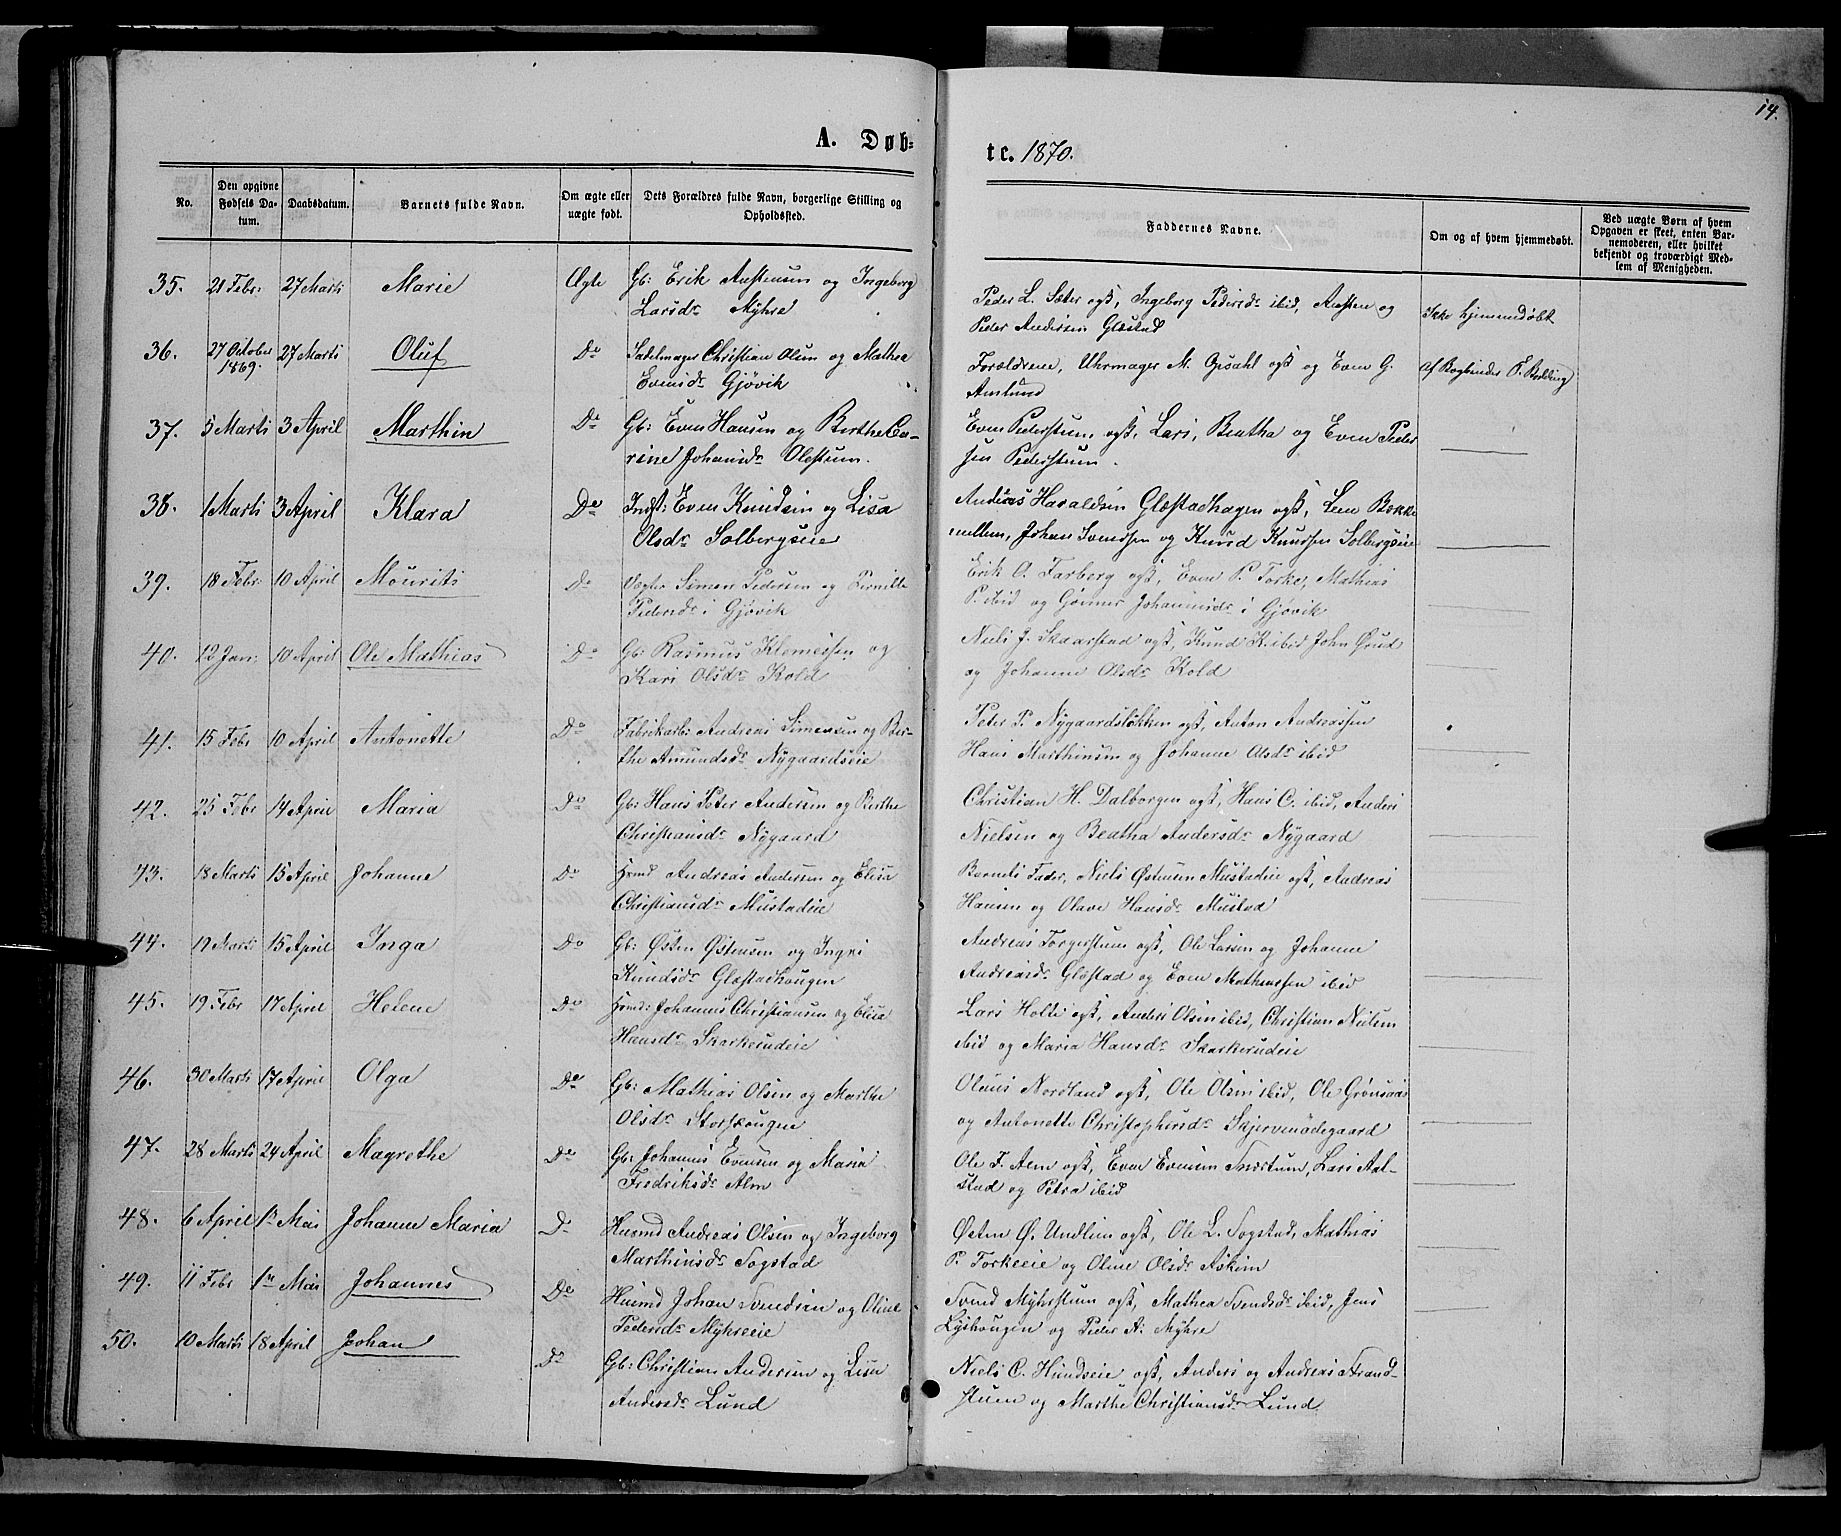 14.
A. Døb-
te. 1870.
No.
Den opgivne Fødsels Da-tum.
Daabsdatum.
Barnets fulde Navn.
Om ægte eller uægte født.
Dets Forældres fulde Navn, borgerlige Stilling og Opholdssted.
Faddernes Navne.
Om og af hvem hjemmedøbt.
Ved uægte Børn af hvem Opgaven er skeet, enten Bar-nemoderen, eller hvilket bekjendt og troværdigt Med-lem af Menigheden.
35. 21 Febr: 27 Marti Marie Ægte Gb: Erik Austensen og Ingeborg
Larsdr Myhre
Peder L. Sæter ogst, Ingeborg Pedersdr ibid, Austen og
Peder Andersen Glæstad
Ikke hjemmedøbt
36. 27 October 1869. 27 Marti Oluf Do Sadelmager Christian Olsen og Mathea
Evensdr Gjøvik
Forældrene, Uhrmager M. Opsahl ogst og Even G.
Amlund
af Bogbinder E. Bødding
37. 5 Marti 3 April Marthin Do Gb: Even Hansen og Berthe Ca-
rine Johansdr Olestuen.
Even Pederstuen ogst, Lars, Beatha og Even Peder
sen Pederstuen.
38. 1 Marti 3 April Klara Do Indst: Even Knudsen og Lisa
Olsdr Solbergseie
Andreas Haraldsen Glæstadhagen ogst, Lene Bakke
mellem, Johan Svendsen og Knud Knudsen Solbergseie
39. 18 Febr: 10 April Mourits Do Vægter Simen Pedersen og Pernille
Pedersdr i Gjøvik
Erik O. Farberg ogst, Even P. Torke, Mathias
P. ibid og Gunner Johannesdr i Gjøvik
40. 12 Jan: 10 April Ole Mathias Do Gb: Rasmus Klemetsen og
Kari Olsdr Kold
Niels J. Skaarstad ogst, Knud K. ibid John Ørud
og Johanne Olsdr Kold
41. 15 Febr 10 April Antonette Do Fabrikarb: Andreas Simensen og Ber-
the Amundsdr Nygaardseie
Peter P. Nygaardsløkken ogst, Anton Andreassen
Hans Marthinsen og Johanne Olsdr ibid
42. 25 Febr 14 April Maria Do Gb: Hans Peter Andersen og Berthe
Christiansdr Nygaard
Christian H. Dalborgen ogst, Hans C. ibid, Anders
Nielsen og Beatha Andersdr Nygaard
43. 18 Marti 15 April Johanne Do Hmd Andreas Andersen og Elisa
Christiansdr Mustadeie
Barnets Fader, Niels Østensen Mustadeie ogst, Andreas
Hansen og Olave Hansdr Mustad
44. 17 Marti 15 April Inga Do Gb: Østen Østensen og Ingri
Knudsdr Glæstadhaugen
Andreas Torgerstuen ogst, Ole Larsen og Johanne
Andreasdr Glæstad og Even Mathiassen ibid
45. 19 Febr 17 April Helene Do Hmd: Johannes Christiansen og Elisa
Hansdr Skarkerudeie
Lars Holte ogst, Anders Olsen ibid, Christian Nielsen
ibid og Maria Hansdr Skarkerudeie
46. 30 Marti 17 April Olga Do Gb: Mathias Olsen og Marthe
Olsdr Storhaugen
Olaus Nordland ogst, Ole Olsen ibid, Ole Grønaas
og Antonette Christophersdr Skjervenødegaard
47. 28 Marti 24 April Magrethe Do Gb: Johannes Evensen og Maria
Fredriksdr Alm
Ole F. Alm ogst, Even Evensen Snertum, Lars Aal-
stad og Petra ibid
48. 6 April 1ste Mai Johanne Maria Do Husmd Andreas Olsen og Ingeborg
Marthinsdr Sogstad
Østen Ø. Undlien ogst, Ole L. Sogstad, Mathias
P. Torkeeie og Oline Olsdr Askim
49. 11 Febr 1ste Mai Johannes Do Husmd Johan Svendsen og Oline
Pedersdr Myhreeie
Svend Myhrstuen ogst, Mathea Svendsdr ibid, Jens
Lyshaugen og Peder A. Myhre
50. 10 Marti 18 April Johan Do Gb: Christian Andersen og Lisa
Andersdr Lund
Niels C. Hundseie ogst, Anders og Andreas Strand-
stuen og Marthe Christiansdr Lund